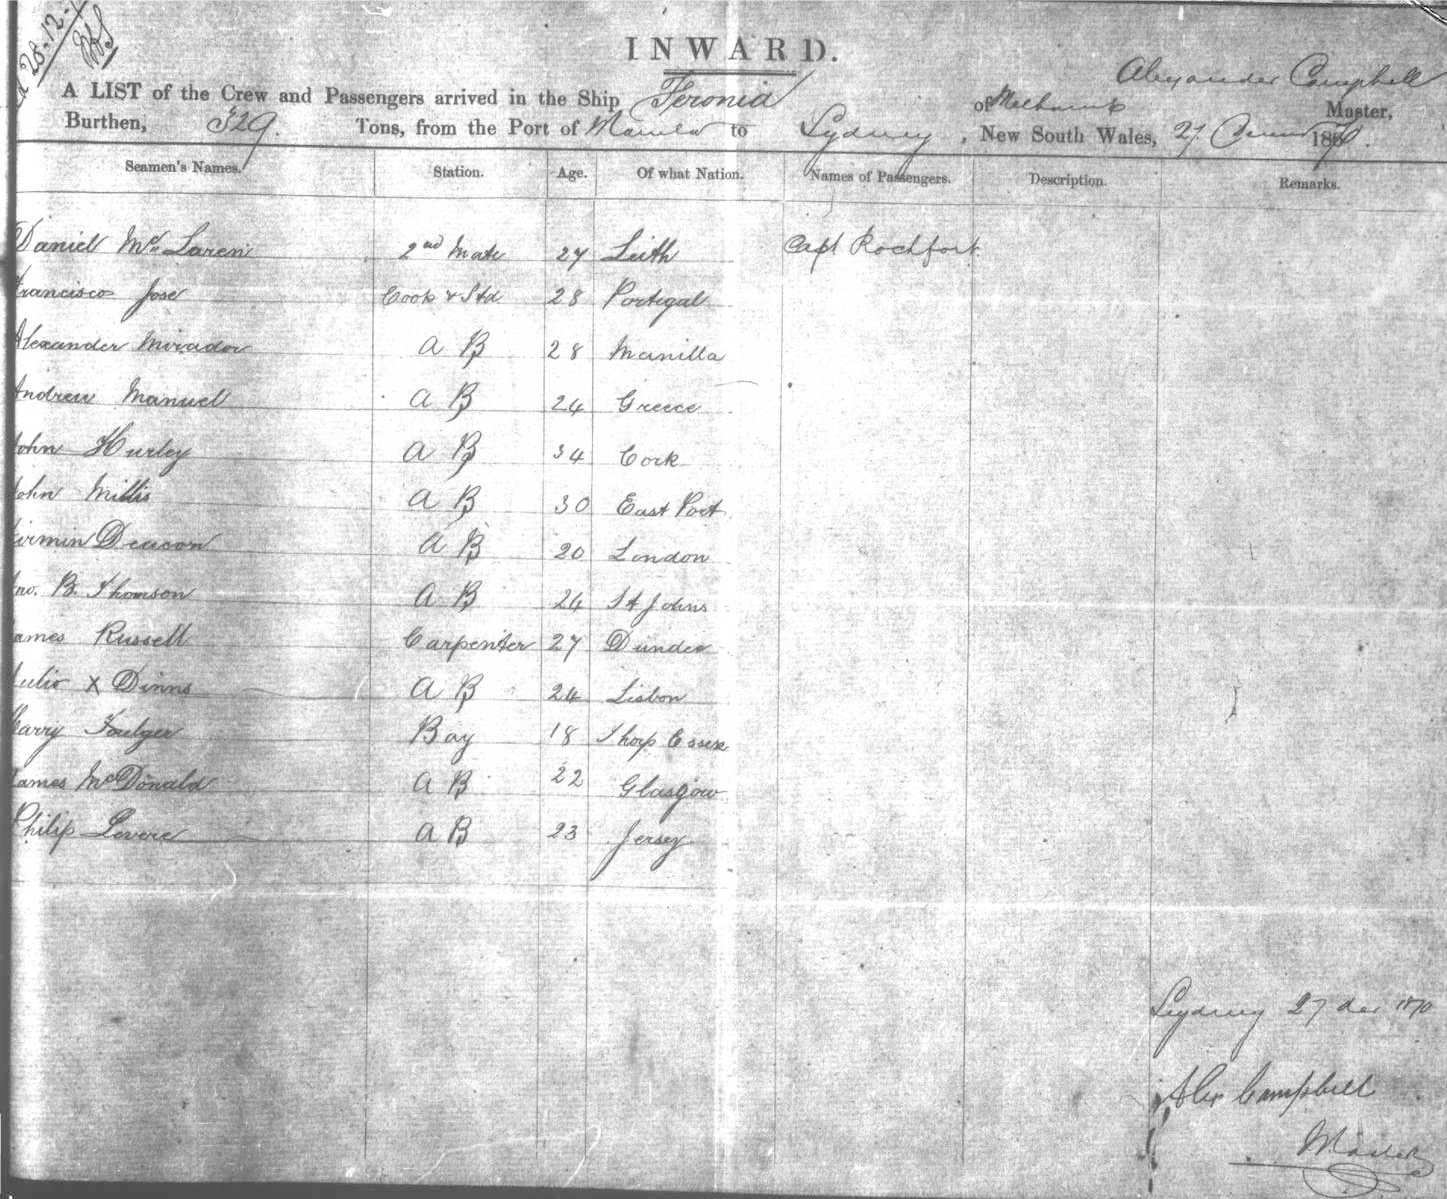 28.12.
INWARD.
Alexander Campbell
A LIST of the Crew and Passengers arrived in the Ship Feronia of Melbourne Master,
Burthen, 329. Tons, from the Port of Manila to Sydney, New South Wales, 27. 18
Seamen's Names. Station. Age. Of what Nation. Names of Passengers. Description. Remarks.
Daniel Mc Laren 2nd Mate 27 Leith Capt Rochfort
Francisco Jose Cook & Std 28 Portugal
Alexander Mirador A B 28 Manilla
Andrew Manuel A B 24 Greece
John Hurley A B 34 Cork
John Millis A B 30 East Port
Firmin Deacon A B 20 London
Jno. B. Thomson A B 24 St Johns
James Russell Carpenter 27 Dundee
Julio X Dinns A B 24 Lisbon
Harry Foulger Boy 18 Thorp Essex
James McDonald A B 22 Glasgow
Philip Levere A B 23 Jersey
Sydney 27 dec 1870
Alex Campbell
Master